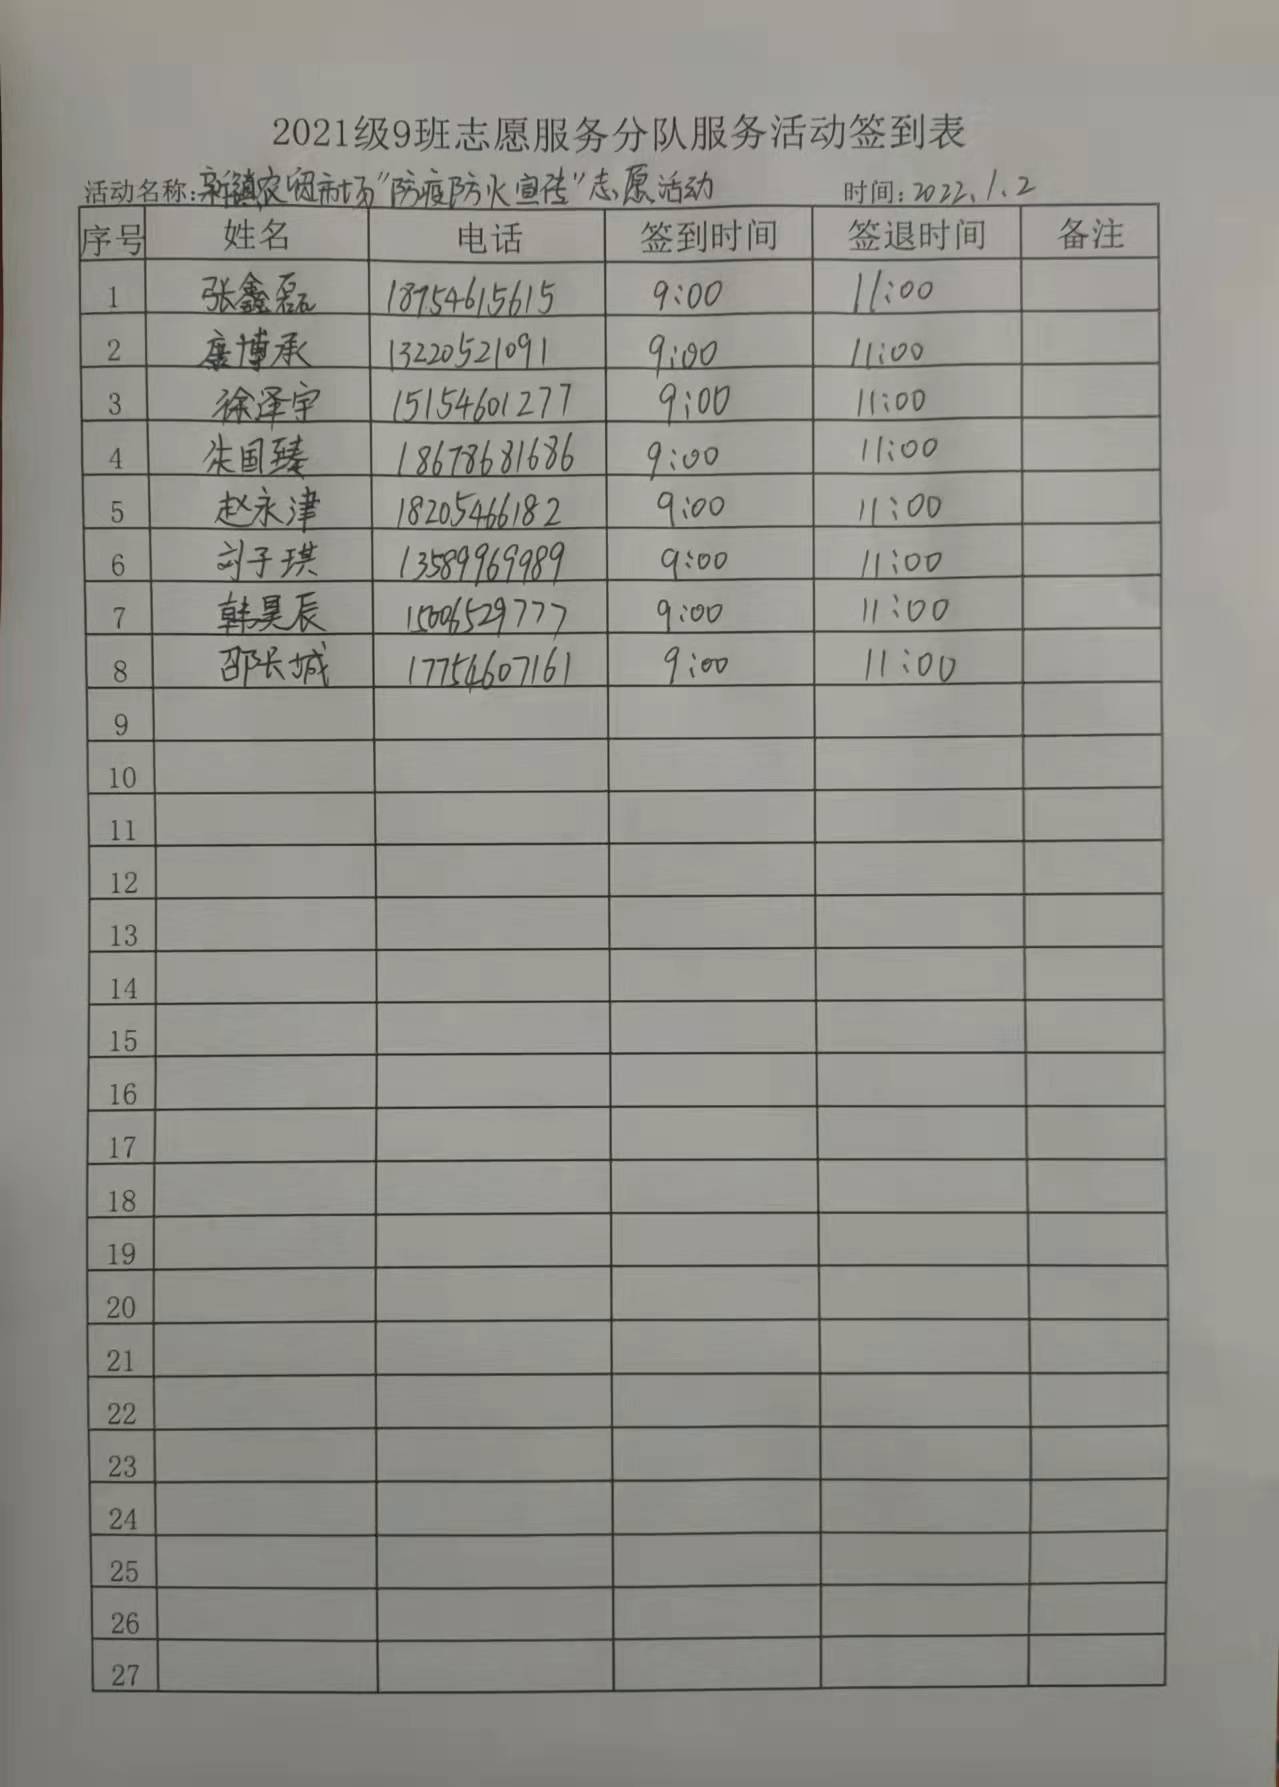 2021级9班志愿服务分队服务活动签到表
活动名称:新镇农贸市场"防疫防火宣传"志愿活动 时间:2022.1.2
序号 姓名 电话 签到时间 签退时间 备注
1 张鑫磊 18754615615 9:00 11:00
2 康博承 13220521091 9:00 11:00
3 徐泽宇 15154601277 9:00 11:00
4 朱国臻 18678681686 9:00 11:00
5 赵永津 18205466182 9:00 11:00
6 刘子琪 13589969989 9:00 11:00
7 韩昊辰 15006529777 9:00 11:00
8 邵长城 17754607161 9:00 11:00
9
10
11
12
13
14
15
16
17
18
19
20
21
22
23
24
25
26
27